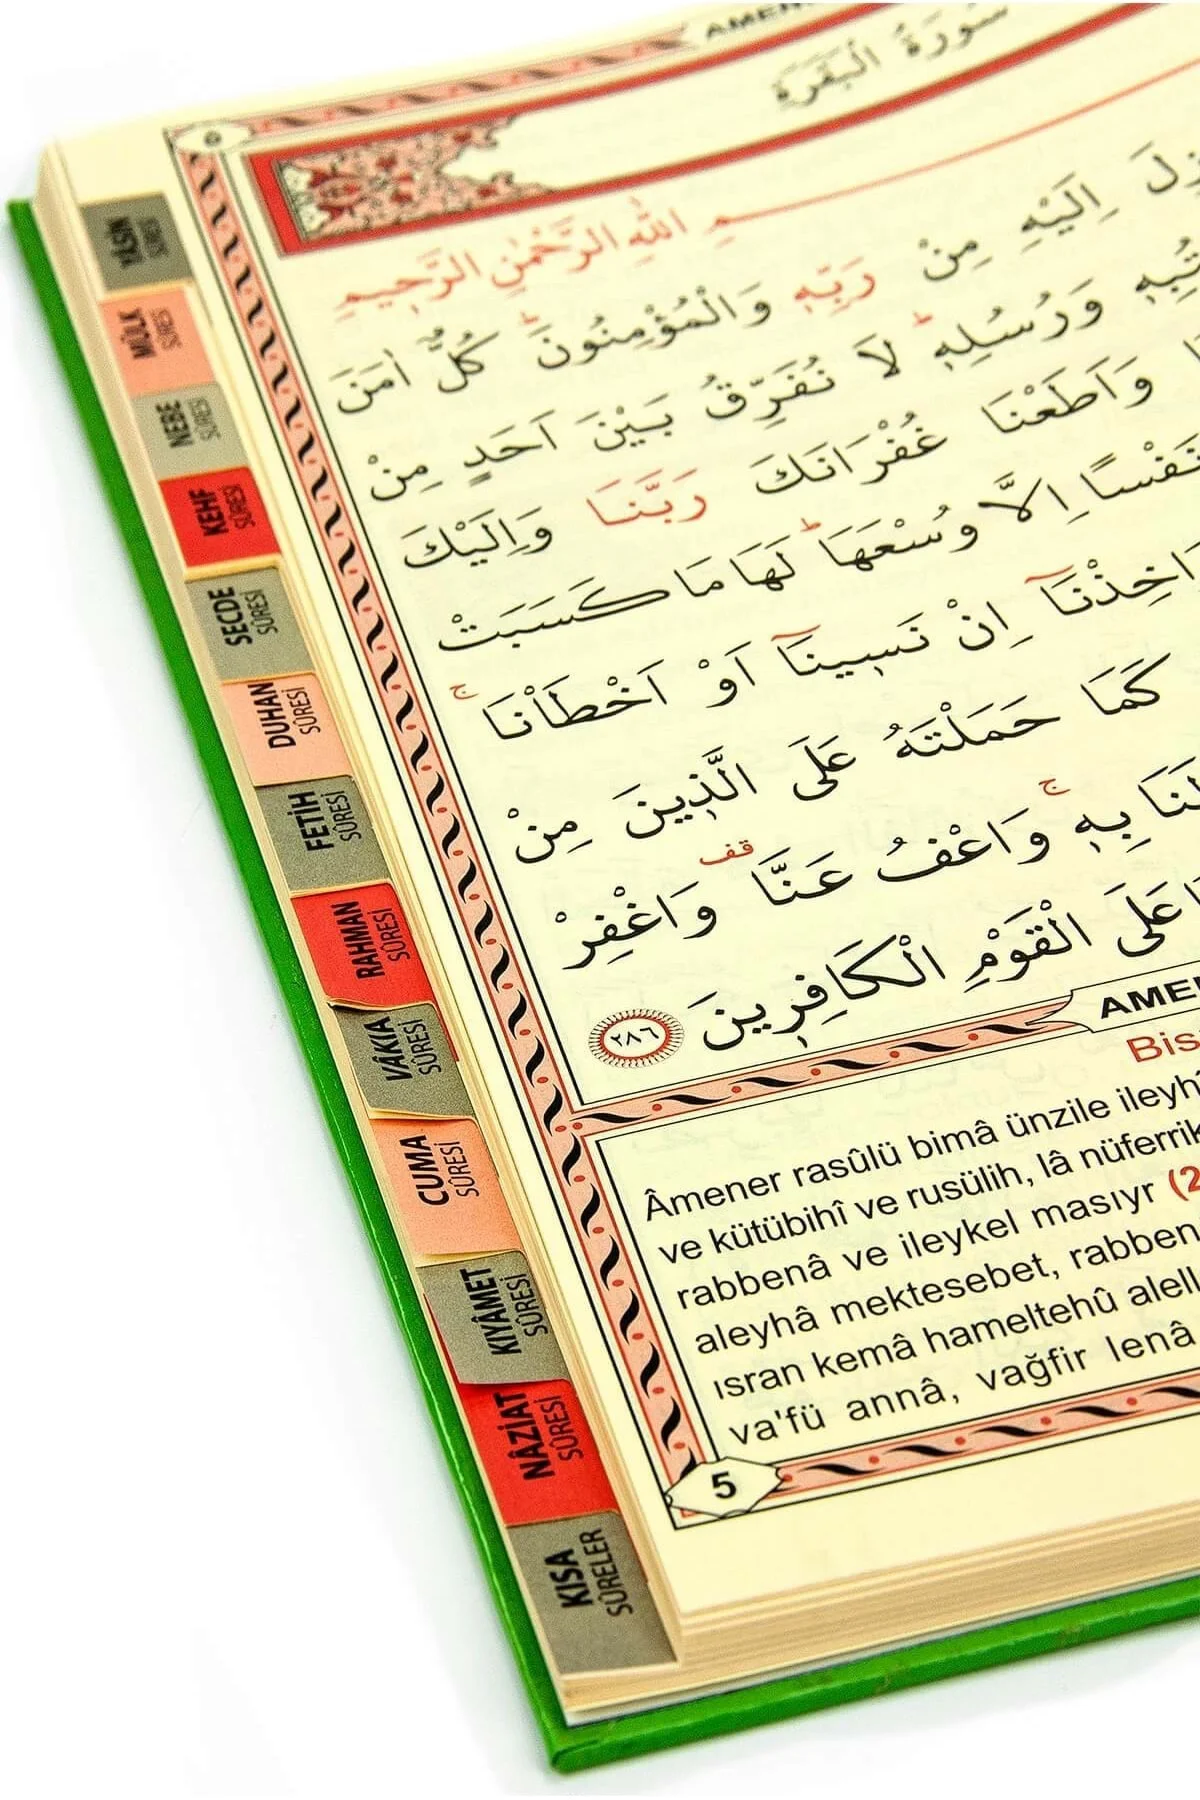 AMENE
سُورَةُ الْبَقَرَةِ
٥
اللّٰهِ الرَّحْمٰنِ الرَّحٖيمِ
اِلَيْهِ مِنْ رَبِّهٖ وَالْمُؤْمِنُونَۜ كُلٌّ اٰمَنَ
وَرُسُلِهٖۜ لَا نُفَرِّقُ بَيْنَ اَحَدٍ مِنْ
وَاَطَعْنَا غُفْرَانَكَ رَبَّنَا وَاِلَيْكَ
نَفْسًا اِلَّا وُسْعَهَاۜ لَهَا مَا كَسَبَتْ
اِنْ نَسٖينَٓا اَوْ اَخْطَاْنَاۚ
كَمَا حَمَلْتَهُ عَلَى الَّذٖينَ مِنْ
لَنَا بِهٖۚ وَاعْفُ عَنَّا۠ وَاغْفِرْ
عَلَى الْقَوْمِ الْكَافِرٖينَ ٢٨٦
AMENE
Bis
Âmener rasûlü bimâ ünzile ileyh
ve kütübihî ve rusülih, lâ nüferrik
rabbenâ ve ileykel masıyr (2
aleyhâ mektesebet, rabben
ısran kemâ hameltehû alell
va'fü annâ, vağfir lenâ
5
YÂSİN SÛRESİ
MÜLK SÛRESİ
NEBE SÛRESİ
KEHF SÛRESİ
SECDE SÛRESİ
DUHAN SÛRESİ
FETİH SÛRESİ
RAHMAN SÛRESİ
VÂKIA SÛRESİ
CUMA SÛRESİ
KIYÂMET SÛRESİ
NÂZİAT SÛRESİ
KISA SÛRELER